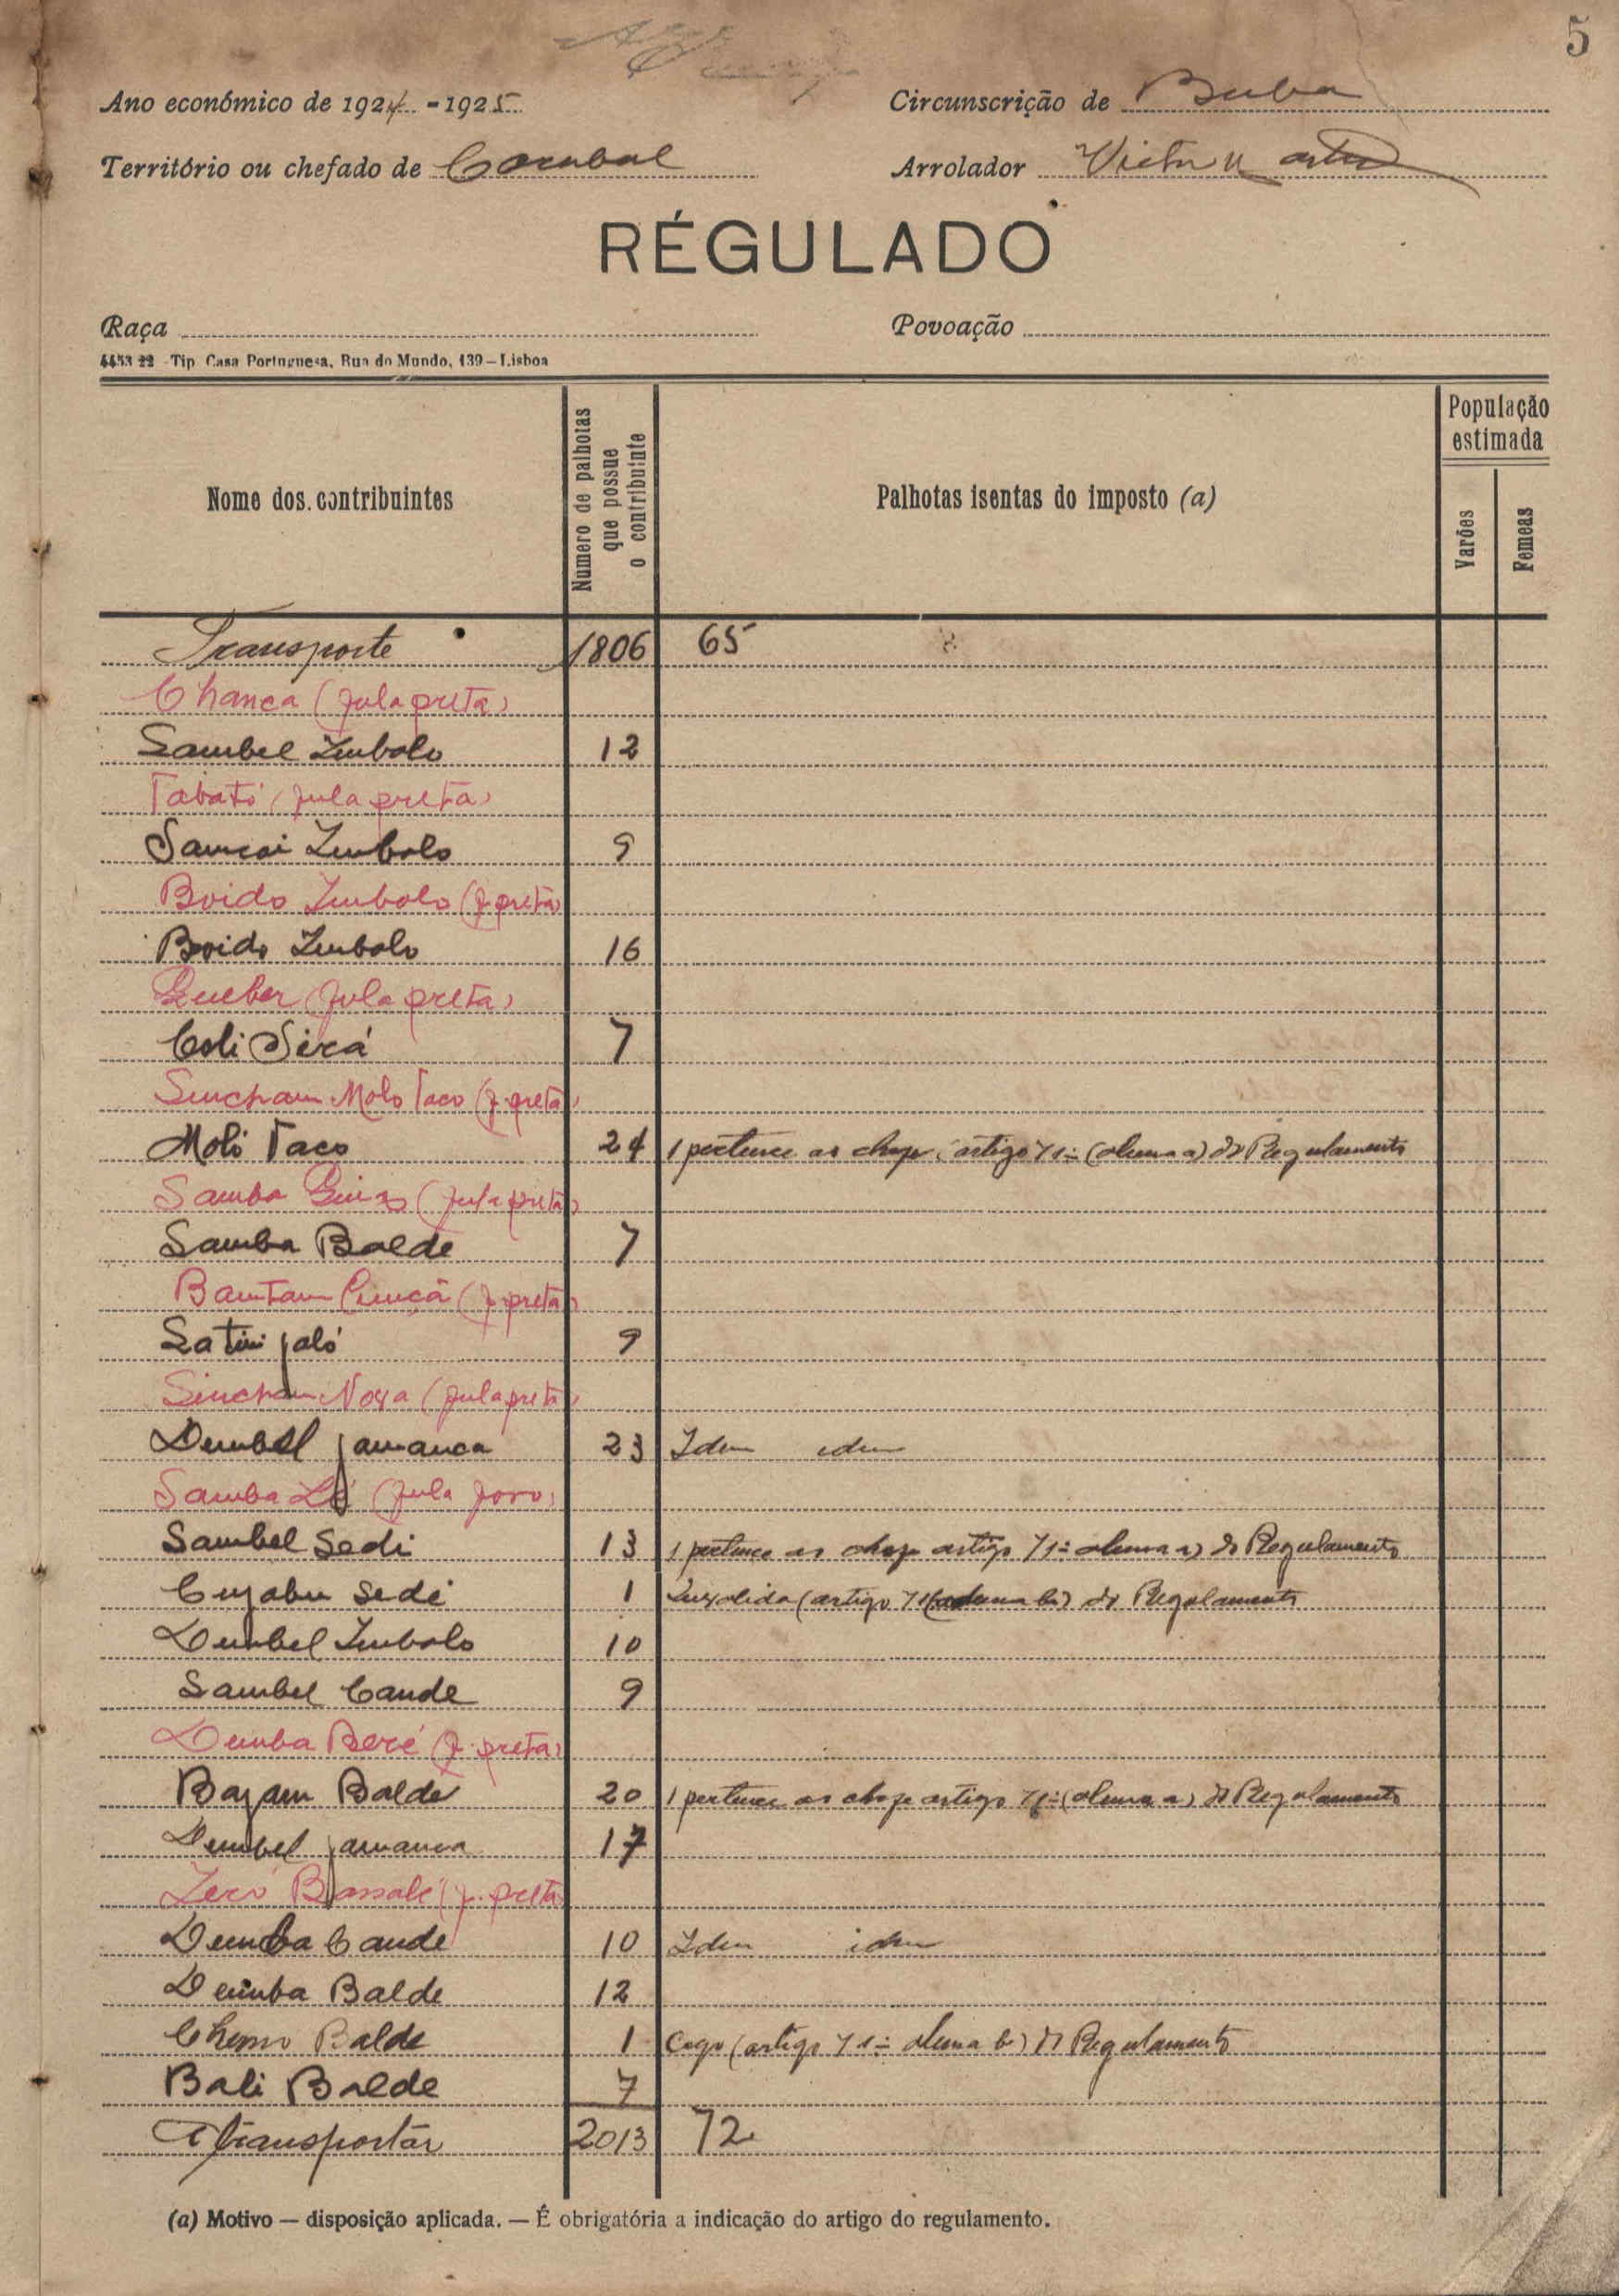 5
Ano económico de 1924 - 1925
Circunscrição de Buba
Território ou chefado de Corubal
Arrolador Victor
RÉGULADO
Raça
Povoação
4453 22 Tip Casa Portuguesa, Rua do Mundo, 139 – Lisboa
Nome dos contribuintes
Numero de palhotas que possue o contribuinte
Palhotas isentas do imposto (a)
População estimada
Varões
Femeas
Transporte 1806 65
Chanca (fula preta)
Sambel Embalo 12
Tabató (fula preta)
Samcai Embalo 9
Boido Embalo (f. preta)
Boido Embalo 16
(fula preta)
Coli Sirá 7
Sincham Molo Taco (f. preta)
Moló Taco 24 1 pertence ao chefe artigo 71º (alinea a) do Regulamento
Samba (fula preta)
Samba Balde 7
Bantam (f. preta)
jaló 9
Sincham Nova (fula preta)
Dembel jamanca 23 Idem idem
Samba (fula foro)
Sambel Sedi 13 1 pertence ao chefe artigo 71º alinea a) do Regulamento
Sedi 1 Invalida (artigo 71 (alinea b) do Regulamento
Dembel Embalo 10
Sambel Cande 9
Demba Beré (f. preta)
Bazam Balde 20 1 pertence ao chefe artigo 71º (alinea a) do Regulamento
Dembel jamanca 17
(f. preta)
Demba Cande 10 Idem idem
Demba Balde 12
Balde 1 Cego (artigo 71º alinea b) do Regulamento
Bali Balde 7
A transportar 2013 72
(a) Motivo — disposição aplicada. — É obrigatória a indicação do artigo do regulamento.